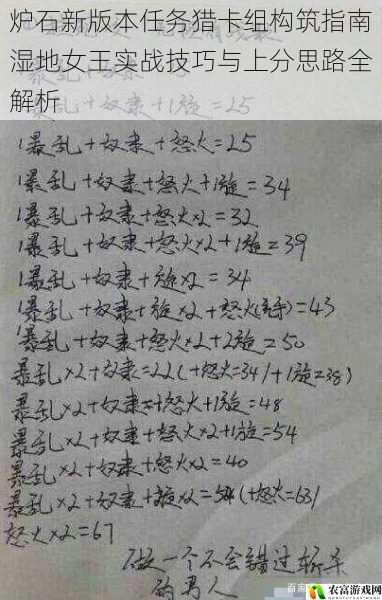 炉石新版本任务猎卡组构筑指南
湿地女王实战技巧与上分思路全
解析
1暴乱+奴隶+怒火=25
1暴乱+奴隶+怒火+1旋=34
1暴乱+奴隶+怒火×2=32
1暴乱+奴隶+怒火×2+1旋=39
1暴乱+奴隶+旋×2=34
1暴乱+奴隶+旋×2+怒火()=43
1暴乱+奴隶+怒火×2+2旋=50
暴乱×2+奴隶=22(+怒火=34/+1旋=38)
暴乱×2+奴隶+怒火+1旋=48
暴乱×2+奴隶+怒火×2+1旋=54
暴乱×2+奴隶+怒火×2=40
暴乱×2+奴隶+旋×2=54(+怒火=63/
怒火×2=67
做一个不会错过斩杀
的男人
百家
农富游戏网